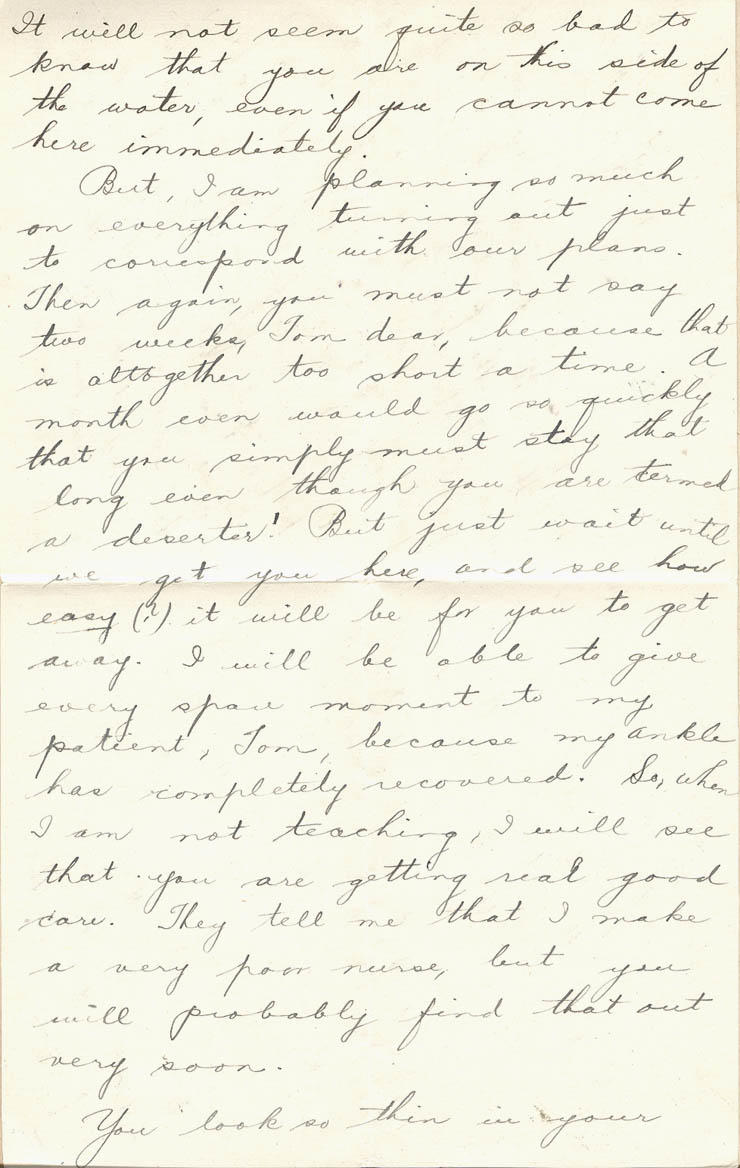 It will not seem quite so bad to
know that you are on this side of
the water, even if you cannot come
here immediately.
But, I am planning so much
on everything turning out just
to correspond with our plans.
Then again, you must not say
two weeks, Tom dear, because that
is altogether too short a time. A
month even would go so quickly
that you simply must stay that
long even though you are termed
a deserter! But just wait until
we get you here, and see how
easy (?) it will be for you to get
away. I will be able to give
every spare moment to my
patient, Tom, because my ankle
has completely recovered. So, when
I am not teaching, I will see
that you are getting real good
care. They tell me that I make
a very poor nurse, but you
will probably find that out
very soon.
You look so thin in your